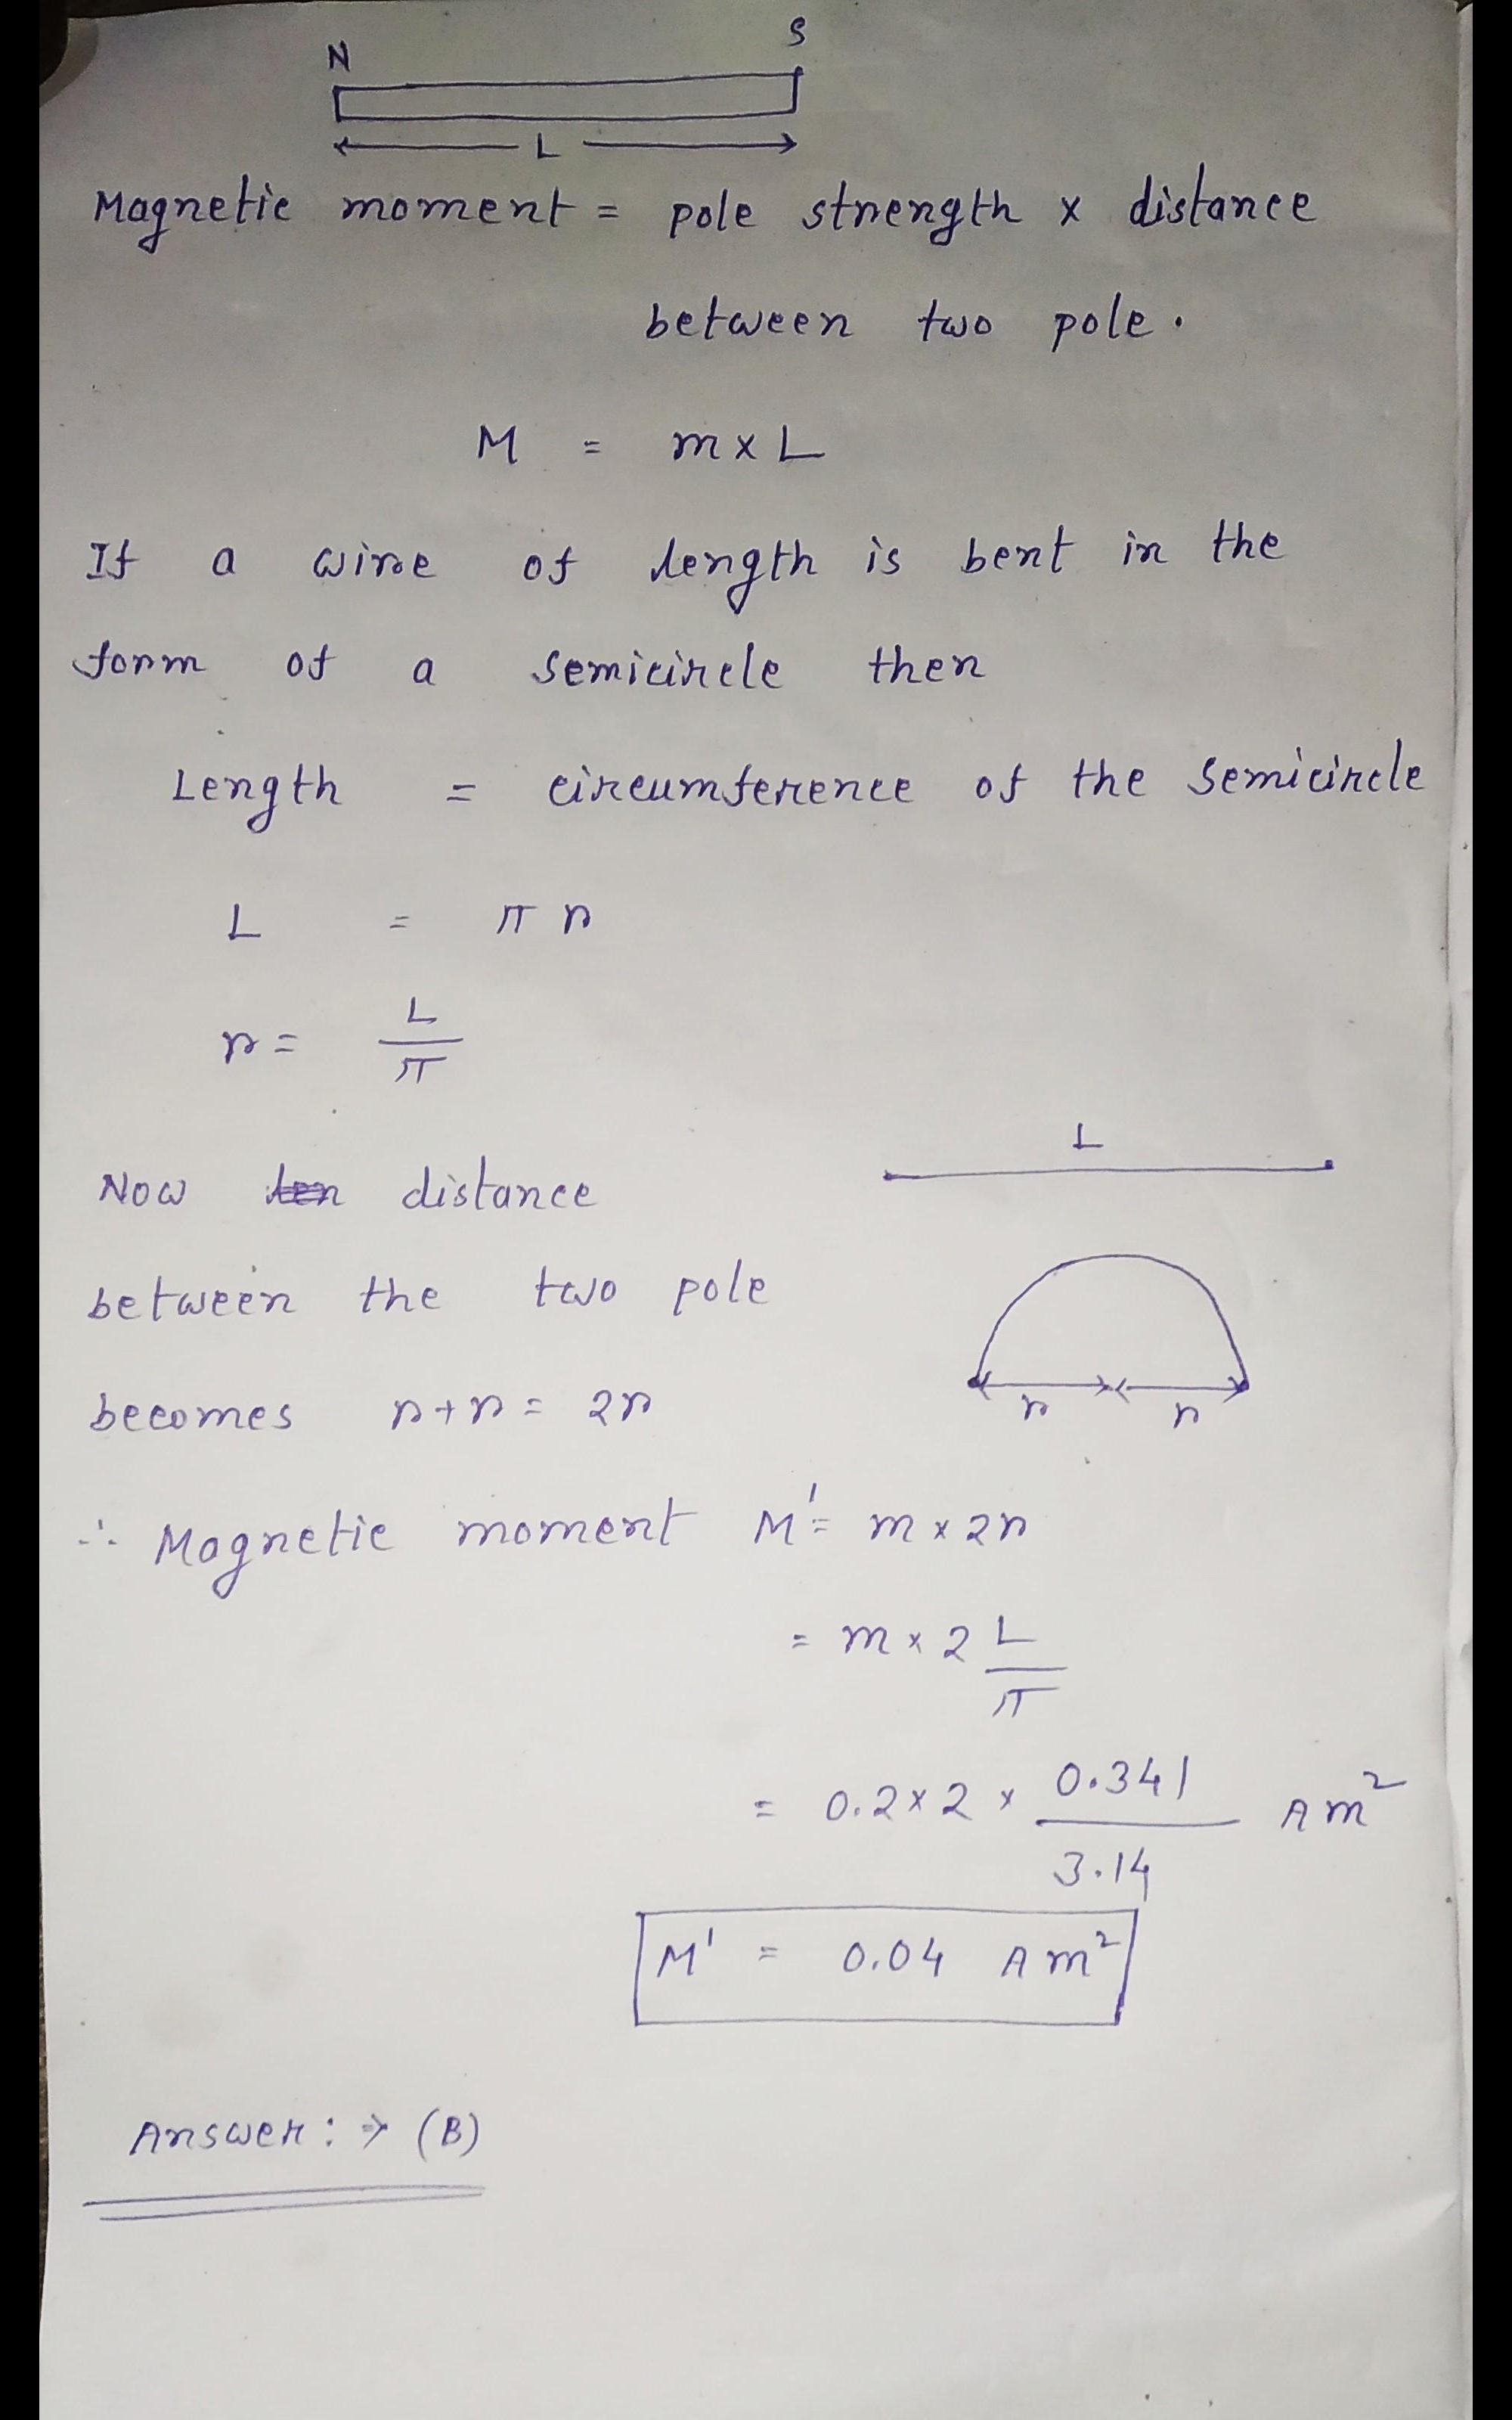 N S
L
Magnetic moment = pole strength x distance
between two pole.
M = m x L
If a wire of length is bent in the
form of a semicircle then
Length = circumference of the semicircle
L = π r
r = L
π
L
Now distance
between the two pole
becomes r + r = 2r
r r
∴ Magnetic moment M' = m x 2r
= m x 2 L
π
= 0.2 x 2 x 0.341 Am²
3.14
M' = 0.04 Am²
Answer : → (B)